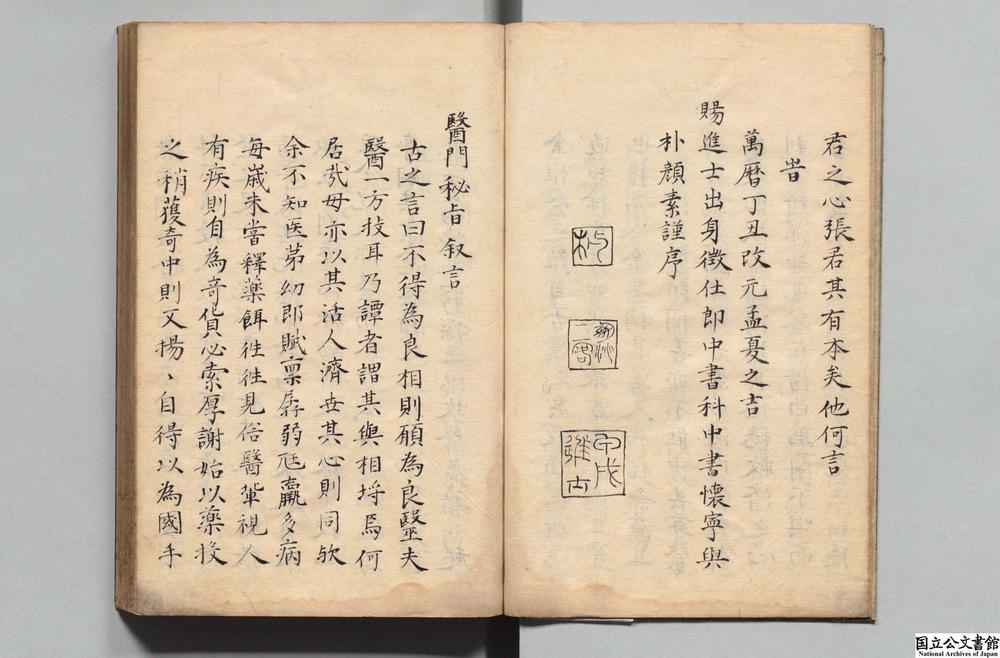 君之心張君其有本矣他何言
旹
萬曆丁丑改元孟夏之吉
賜進士出身徵仕郎中書科中書懷寧與
朴顏素謹序
甲戌
進士
醫門秘旨叙言
古之言曰不得為良相則願為良毉夫
醫一方技耳乃譚者謂其與相埒焉何
居哉毋亦以其活人濟世其心則同欤
余不知医苐幻郎賦禀孱弱尫羸多病
每嵗未嘗釋藥餌徃徃見俗醫軰視人
有疾則自為奇貨必索厚謝始以藥投
之稍獲奇中則又揚、自得以為國手
国立公文書館
National Archives of Japan